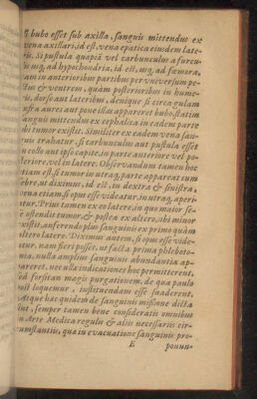 Si bubo esset sub axilla, sanguis mittendus ex
vena axillari, id est, vena epatica eiusdem late-
ris. Si pustula aποquà vel carbunculus a furcu-
usq, ad hypochondria, id est, usq, ad fœmora,
tam in anterioribus partibus per universum pe-
ctus & ventrem, quàm posterioribus in hume-
ris, dorso aut lateribus, denique si circa gulam
infra aures aut pone illas appareret bubo: statim
sanguis mittendus ex cephalica in eadem parte
ubi tumor existit. Similiter ex eadem vena san-
guis trahatur, si carbunculus aut pustula esset
in collo aut ipso capite, in parte anteriore vel po-
steriore, vel in latere. Observandum tamen hoc
etiam est, si tumor in utraq, parte appareat cum
febre, ut diximus, id est, in dextra & sinistra,
vena etiam, si opus esse videatur, in utraq, aperi-
atur. Prius tamen ex eo latere, in quo maior se-
se ostendit tumor, & postea ex altero, ubi minor
existit, auferendo plus sanguinis ex primo quàm
altero latere. Diximus autem, si opus esse vide-
atur. nam fieri posset, ut facta prima phleboto-
mia, nulla amplius sanguinis abundantia ap-
pareret, nec ulla indicationes hoc permitterent,
sed forsitan magis purgationem, de qua paulò
post loquemur, instituendam esse suaderent.
Atque hæc quidem de sanguinis missione dicta
sint, semper tamen bene consideratis omnibus
in Arte Medica regulis & aliis necessariis cir-
cumstantiis, qua in evacuatione sanguinis pro-
E ponun-